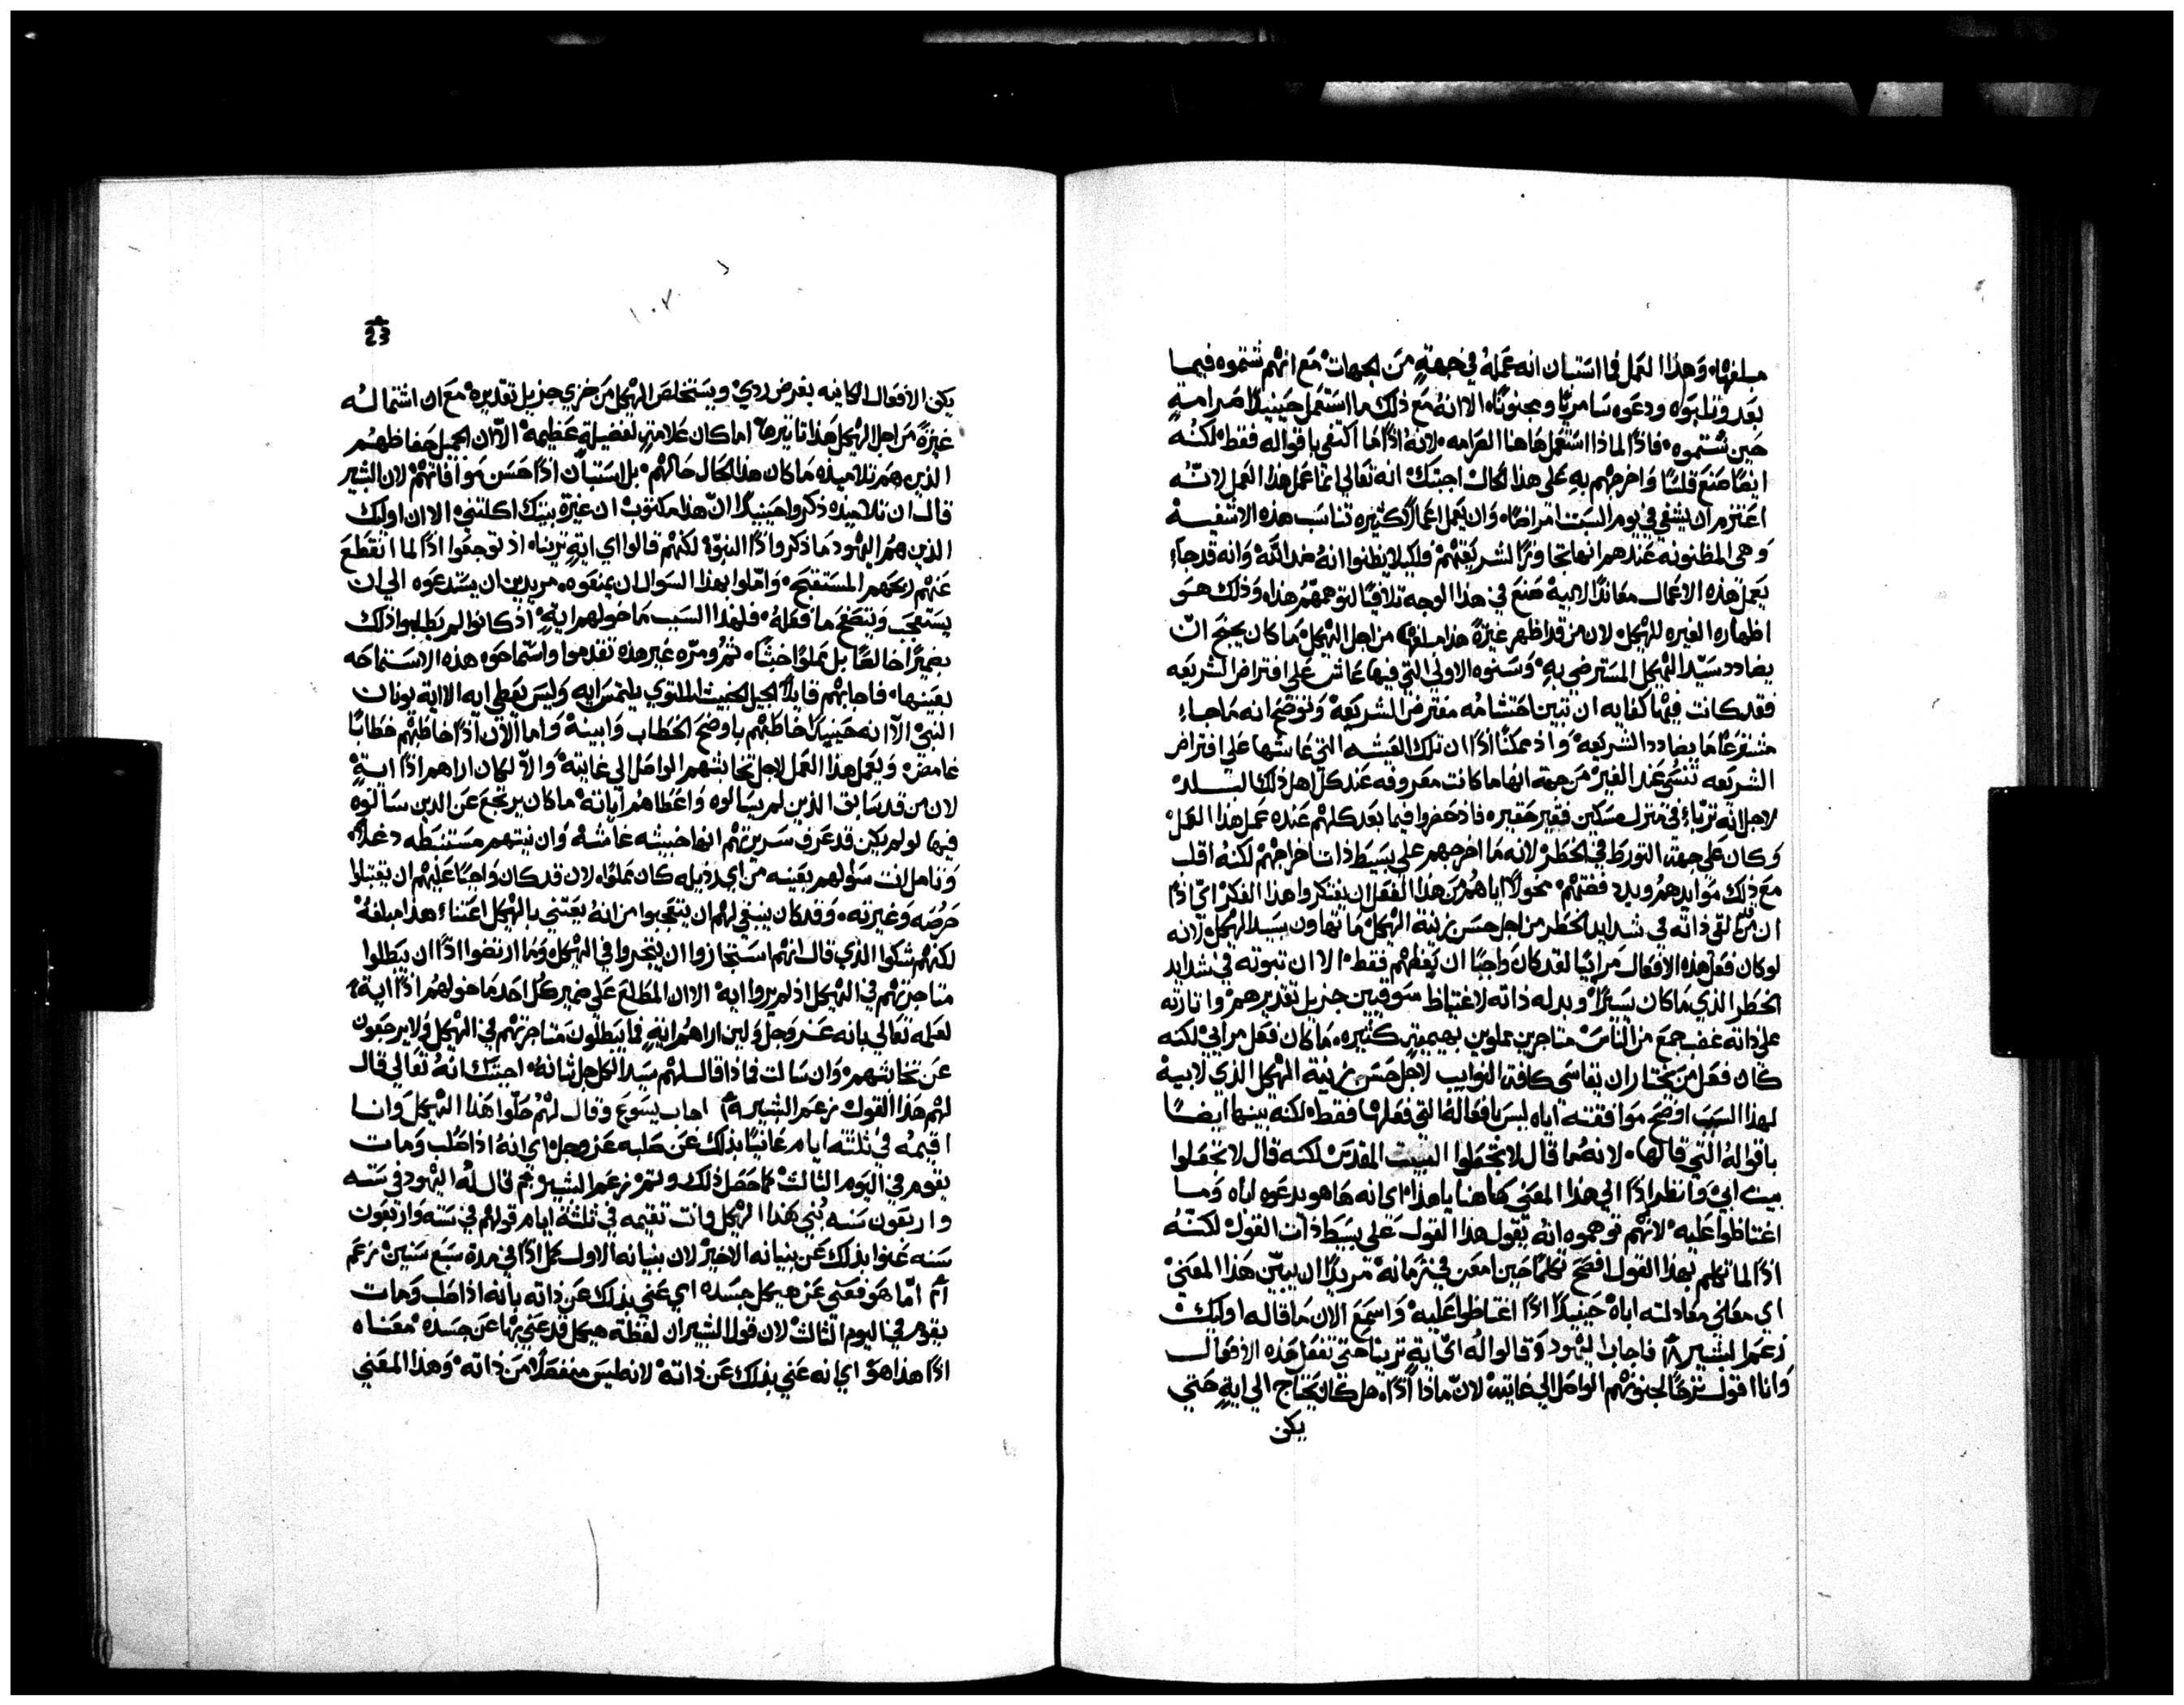 مبلغها، وهذا العمل فما استبان انه عمله في جهةٍ من الجهات مع انهم شتموه فيما
بعد وثلبوه ودعوه سامريًا ومجنونًا، الا انه مع ذلك ما استعمل حينيذًا صرامةٍ
حين شتموه، فاذًا لماذا استعمل هاهنا الصرامه، لانه اذًا ما اكتفي باقواله فقط، لكنه
ايضًا صنع قلسًا واخرجهم به على هذا الحال اجبتك، انه تعالى انما عمل هذا العمل لانه
اعتزم ان يشفي في يوم السبت امراضًا، وان يعمل اعمالًا كثيره تناسب هذه الاشفيه
وهى المظنونه عندهم انها تجاوزًا لشريعتهم، فلكيلا يظنوا انه ضد الله، وانه قد جاءِ
يعمل هذه الاعمال معاندًا لابيه، صنع في هذا الوجه تلافيًا لتوهمهم هذا، وذلك هو
اظهاره الغيره للهيكل، لان من قد اظهر غيرةً هذا مبلغها من اجل الهيكل، ما كان يجنح ان
يضادد سيّد الهيكل المسترضى به، وسنوه الاولى التي فيها عاش على افتراض الشريعه
فقد كانت فيها كفايه ان تبين احتشامه مفترض الشريعه، وتوضح انه ما جاءِ
مشترعًا ما يضادد الشريعه، واذ ممكنًا اذًا ان تلك العيشه التي عاشها على افتراض
الشريعه تنسي عند الغير من جهة انها ما كانت معروفه عند كل اهل ذلك البلد
لاجل انه تربّاءِ في منزل مسكين فقير حقير، فاذ حضروا فيما بعد كلهم عنده عمل هذا العمل
وكان على جهة التورط في الخطر، لانه ما اخرجهم على بسيط ذات اخراجهم لكنه اقلب
مع ذلك موايدهم وبدد فضتهم، مخولًا اياهم من هذا الفعل ان يفتكروا هذا الفكر، اي اذًا
ان من القي ذاته في شدايد الخطر من اجل حسن زينة الهيكل ما تهاون بسيد الهيكل، لانه
لو كان فعل هذه الافعال مراييًا لقد كان واجبًا ان يعظهم فقط، الا ان ثبوته في شدايد
الخطر الذي ما كان يسيرًا، وبدله ذاته لاغتياظ سوقيين جزيل تقديرهم، واثارته
على ذاته غضب جمع من الناس متاجرين مملوين بهيميةٍ كثيره، ما كان فعل مرايي لكنه
كان فعل من يختار ان يقاسي كافة النوايب لاجل حسن زينة الهيكل الذي لابيه
لهذا السبب اوضح موافقته اياه ليس بافعاله التي فعلها فقط، لكنه بينها ايضًا
باقواله التي قالها، لانه ما قال لا تجعلوا البيت المقدس لكنه قال لا تجعلوا
بيت ابي، وانظر اذًا الي هذا المعني هاهنا يا هذا، اي انه ها هو يدعوه اباه وما
اغتاظوا عليه، لانهم توهموه انه يقول هذا القول على بسيط ذات القول، لكنه
اذًا لما تكلم بهذا القول افصح تكلمًا حين امعن في زمانه، مريدًا ان يبيّن هذا المعني
اي معني معادلته اباه، حينيذًا اذًا اغتاظوا عليه، واسمع الان ما قاله اوليك
زعم البشير فاجاب اليهود وقالوا له اي ايةٍ ترينا حتى تفعل هذه الافعال
وانا اقول ترحًا لجنونهم الواصل الي غايته، لان ماذا اذًا، هل كان يحتاج الي ايةٍ حتي
يكن
23
١٠٧
يكن الافعال الكاينه بغرض ردي، ويستخلص الهيكل من خزي جزيل تقديره، مع ان اشتماله
غيرةً من اجل الهيكل هذا تاثيرها، اما كان علامةٍ لفضيلةٍ عظيمه، الا ان الجميل حفاظهم
الذين هم تلاميذه، ما كان هذا الحال حالهم، بل استبان اذًا حسن موافاتهم، لان البشير
قال ان تلاميذه ذكروا حينيذًا ان هذا مكتوب، ان غيرة بيتك اكلتني، الا ان اوليك
الذين هم اليهود ما ذكروا اذًا النبوّة لكنهم قالوا اي ايةٍ ترينا، اذ توجعوا اذًا لما انقطع
عنهم ربحهم المستقبح، وامّلوا بهذا السوال ان يمنعوه، مريدين ان يستدعوه الي ان
يستعجب ويتصفح ما فعله، فلهذا السبب ما خولهم ايةٍ، اذ كانوا لم يطلبوا ذلك
بضميرًا خالصًا بل مملوًا خبثًا، ثم ومرّه غير هذه تقدموا واستماحوه هذه الاستماحه
بعينها، فاجابهم قايلًا الجيل الخبيث الملتوي يلتمس ايه، وليس يعطى ايه الا اية يونان
النبي، الا انه حينيذًا خاطبهم باوضح الخطاب وابينه، واما الان اذًا خاطبهم خطابًا
غامض، ويعمل هذا العمل لاجل تخابثهم الواصل الي غايته، والا لكان اراهم اذًا ايةٍ
لان من قد سابق الذين لم يسالوه، واعطاهم اياته، ما كان يرتجع عن الذين سالوه
فيها لو لم يكن قد عرف سريرتهم انها خبيثه غاشه، وان نيتهم مستنبطه دغلًا،
وتامل انت سؤلهم بعينه من اي رذيله كان مملوًا، لان قد كان واجبًا عليهم ان يقبلوا
حرصه وغيرته، وقد كان ينبغي لهم ان يتعجبوا من انه يعتني بالهيكل اعتناءِ هذا مبلغه
لكنهم شكوا الذي قال انهم استجازوا ان يتجروا في الهيكل، وما ارتضوا اذًا ان يبطلوا
متاجرتهم في الهيكل اذ لم يروا ايه، الا ان المطلع على ضمير كل احد ما خولهم اذًا اية،
لعلمه تعالي بانه عز وجل ولين اراهم ايةٍ فما يبطلون متاجرتهم في الهيكل ولا يرجعون
عن تخابثهم، وان سالت فماذا قال لهم سيد الكل جل ثنائه، اجبتك انه تعالي قال
لهم هذا القول زعم البشير اجاب يسوع وقال لهم حلّوا هذا الهيكل وانا
اقيمه في ثلثة ايام، عانيًا بذلك عن صلبه عز وجل، اي انه اذا صُلب ومات
يقوم في اليوم الثالث، كما حصل ذلك وتم، زعم البشير قال له اليهود في سته
واربعون سنه بُني هذا الهيكل وانت تقيمه في ثلثة ايام، قولهم في سته واربعون
سنه عنوا بذلك عن بنيانه الاخير، لان بنيانه الاول كمل اذًا في مدة سبع سنين، زعم
اما هو فعني عن هيكل جسده، اي عني بذلك عن ذاته بانه اذا صلب ومات
يقوم في اليوم الثالث، لان قول البشير ان لفظة هيكل قد عني بها عن جسده، معناه
اذًا هذا هو، اي انه عني بذلك عن ذاته، لانه ليس منفصلًا من ذاته، وهذا المعني